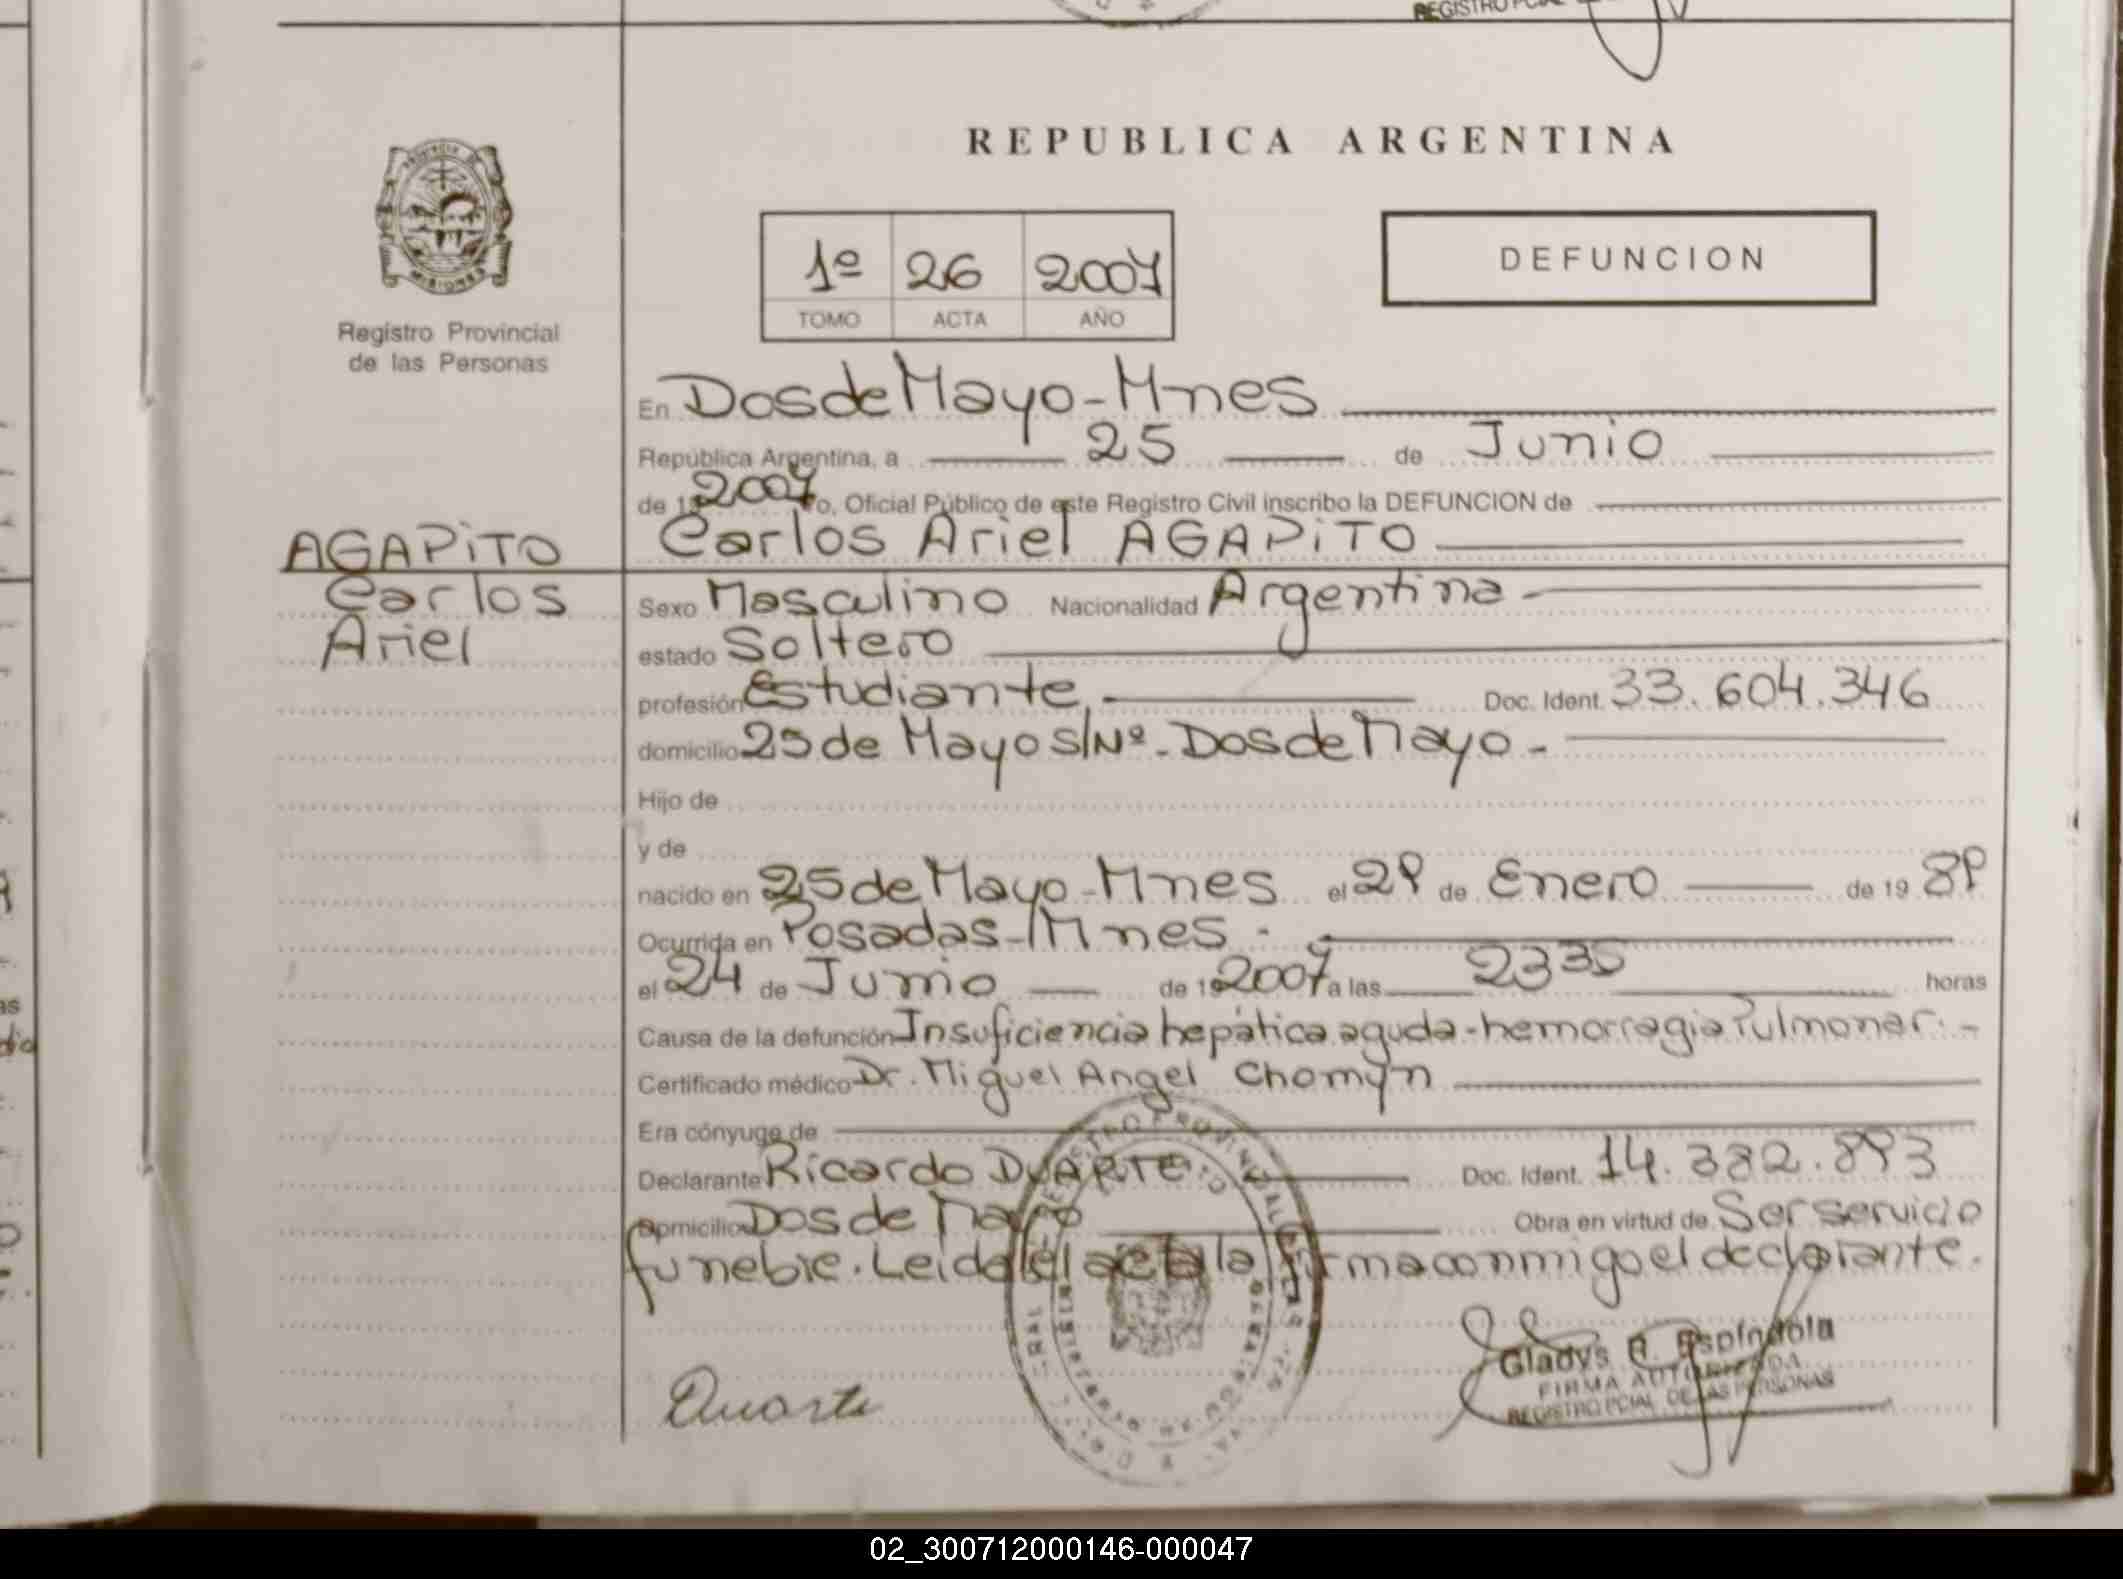 REGISTRO PCIAL
REPUBLICA ARGENTINA
1º 26 2007
TOMO ACTA AÑO
DEFUNCION
Registro Provincial
de las Personas
En Dos de Mayo - Mnes
República Argentina, a 25 de Junio
de 2007 yo, Oficial Público de este Registro Civil inscribo la DEFUNCION de
AGAPiTO Carlos Ariel AGAPiTO
Carlos Sexo Masculino Nacionalidad Argentina -
Ariel estado Soltero
profesión Estudiante. Doc. Ident. 33.604.346
domicilio 25 de Mayo S/Nº - Dos de Mayo -
Hijo de
y de
nacido en 25 de Mayo - Mnes el 29 de Enero de 19 89
Ocurrida en Posadas - Mnes -
el 24 de Junio de 2007 a las 23 35 horas
Causa de la defunción Insuficiencia hepática aguda - hemorragia Pulmonar. -
Certificado médico Dr. Miguel Angel Chomyn
Era cónyuge de
Declarante Ricardo DUARTE Doc. Ident. 14.382.893
Domicilio Dos de Mayo Obra en virtud de Ser servicio
funebre. Leida el acta la firma conmigo el declarante.
Duarte
Gladys Espíndola
FIRMA AUTORIZADA
REGISTRO PCIAL. DE LAS PERSONAS
02_300712000146-000047